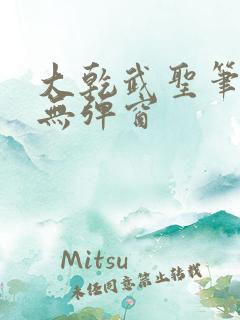 大乾武聖筆
無彈窗
Mitsu
未经同意禁止转载